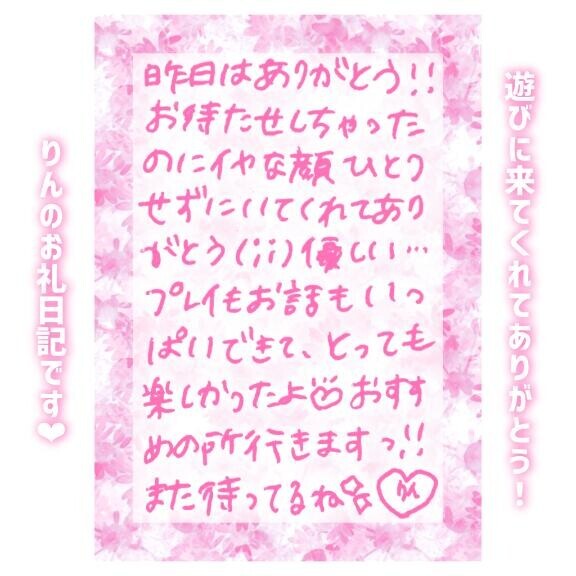 遊びに来てくれてありがとう!
昨日はありがとう!!
お待たせしちゃった
のにイヤな顔ひとつ
せずにいてくれてあり
がとう(;;)優しい…
プレイもお話もいっ
ぱいできて、とっても
楽しかったよ♡おすす
めの所行きますっ!!
また待ってるね
りん
りんのお礼日記です❤